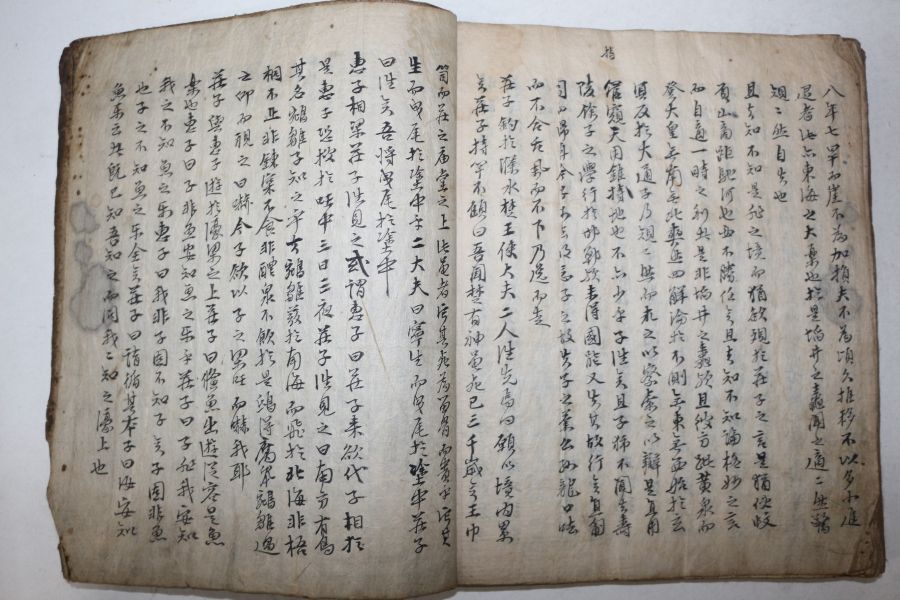 八年七旱而崖不為加損夫不為頃久推移不以多小進
退者此亦東海之大樂也於是埳井之蛙聞之適〻然驚
規〻然自失也
且夫知不知是非之境而猶欲觀於莊子之言是猶使蚊
負山商蚷馳河也必不勝任矣且夫知不知論極妙之言
而自適一時之利者是非埳井之蛙歟且彼方跐黃泉而
登大皇無南無北奭然四解淪於不測無東無西始於玄
冥反於大通子乃規〻然而求之以察索之以辯是直用
管窺天用錐指地也不亦少乎子往矣且子獨不聞夫壽
陵餘子之學行於邯鄲歟未得國能又失其故行矣直匍
匐而歸耳今子不去將忘子之故失子之業公孫龍口呿
而不合舌舉而不下乃逸而走
莊子釣於濮水楚王使大夫二人往先焉曰願以境內累
矣莊子持竿不顧曰吾聞楚有神龜死已三千歲矣王巾
笥而藏之廟堂之上此龜者寧其死為留骨而貴乎寧其
生而曳尾於塗中乎二大夫曰寧生而曳尾於塗中莊子
曰往矣吾將曳尾於塗中
惠子相梁莊子往見之或謂惠子曰莊子來欲代子相於
是惠子恐搜於國中三日三夜莊子往見之曰南方有鳥
其名鵷雛子知之乎夫鵷雛發於南海而飛於北海非梧
桐不止非練實不食非醴泉不飲於是鴟得腐鼠鵷雛過
之仰而視之曰嚇今子欲以子之梁國而嚇我耶
莊子與惠子遊於濠梁之上莊子曰鯈魚出遊從容是魚
樂也惠子曰子非魚安知魚之乐乎莊子曰子非我安知
我之不知魚之乐惠子曰我非子固不知子矣子固非魚
也子之不知魚之乐全矣莊子曰請循其本子曰汝安知
魚乐云者既已知吾知之而問我〻知之濠上也